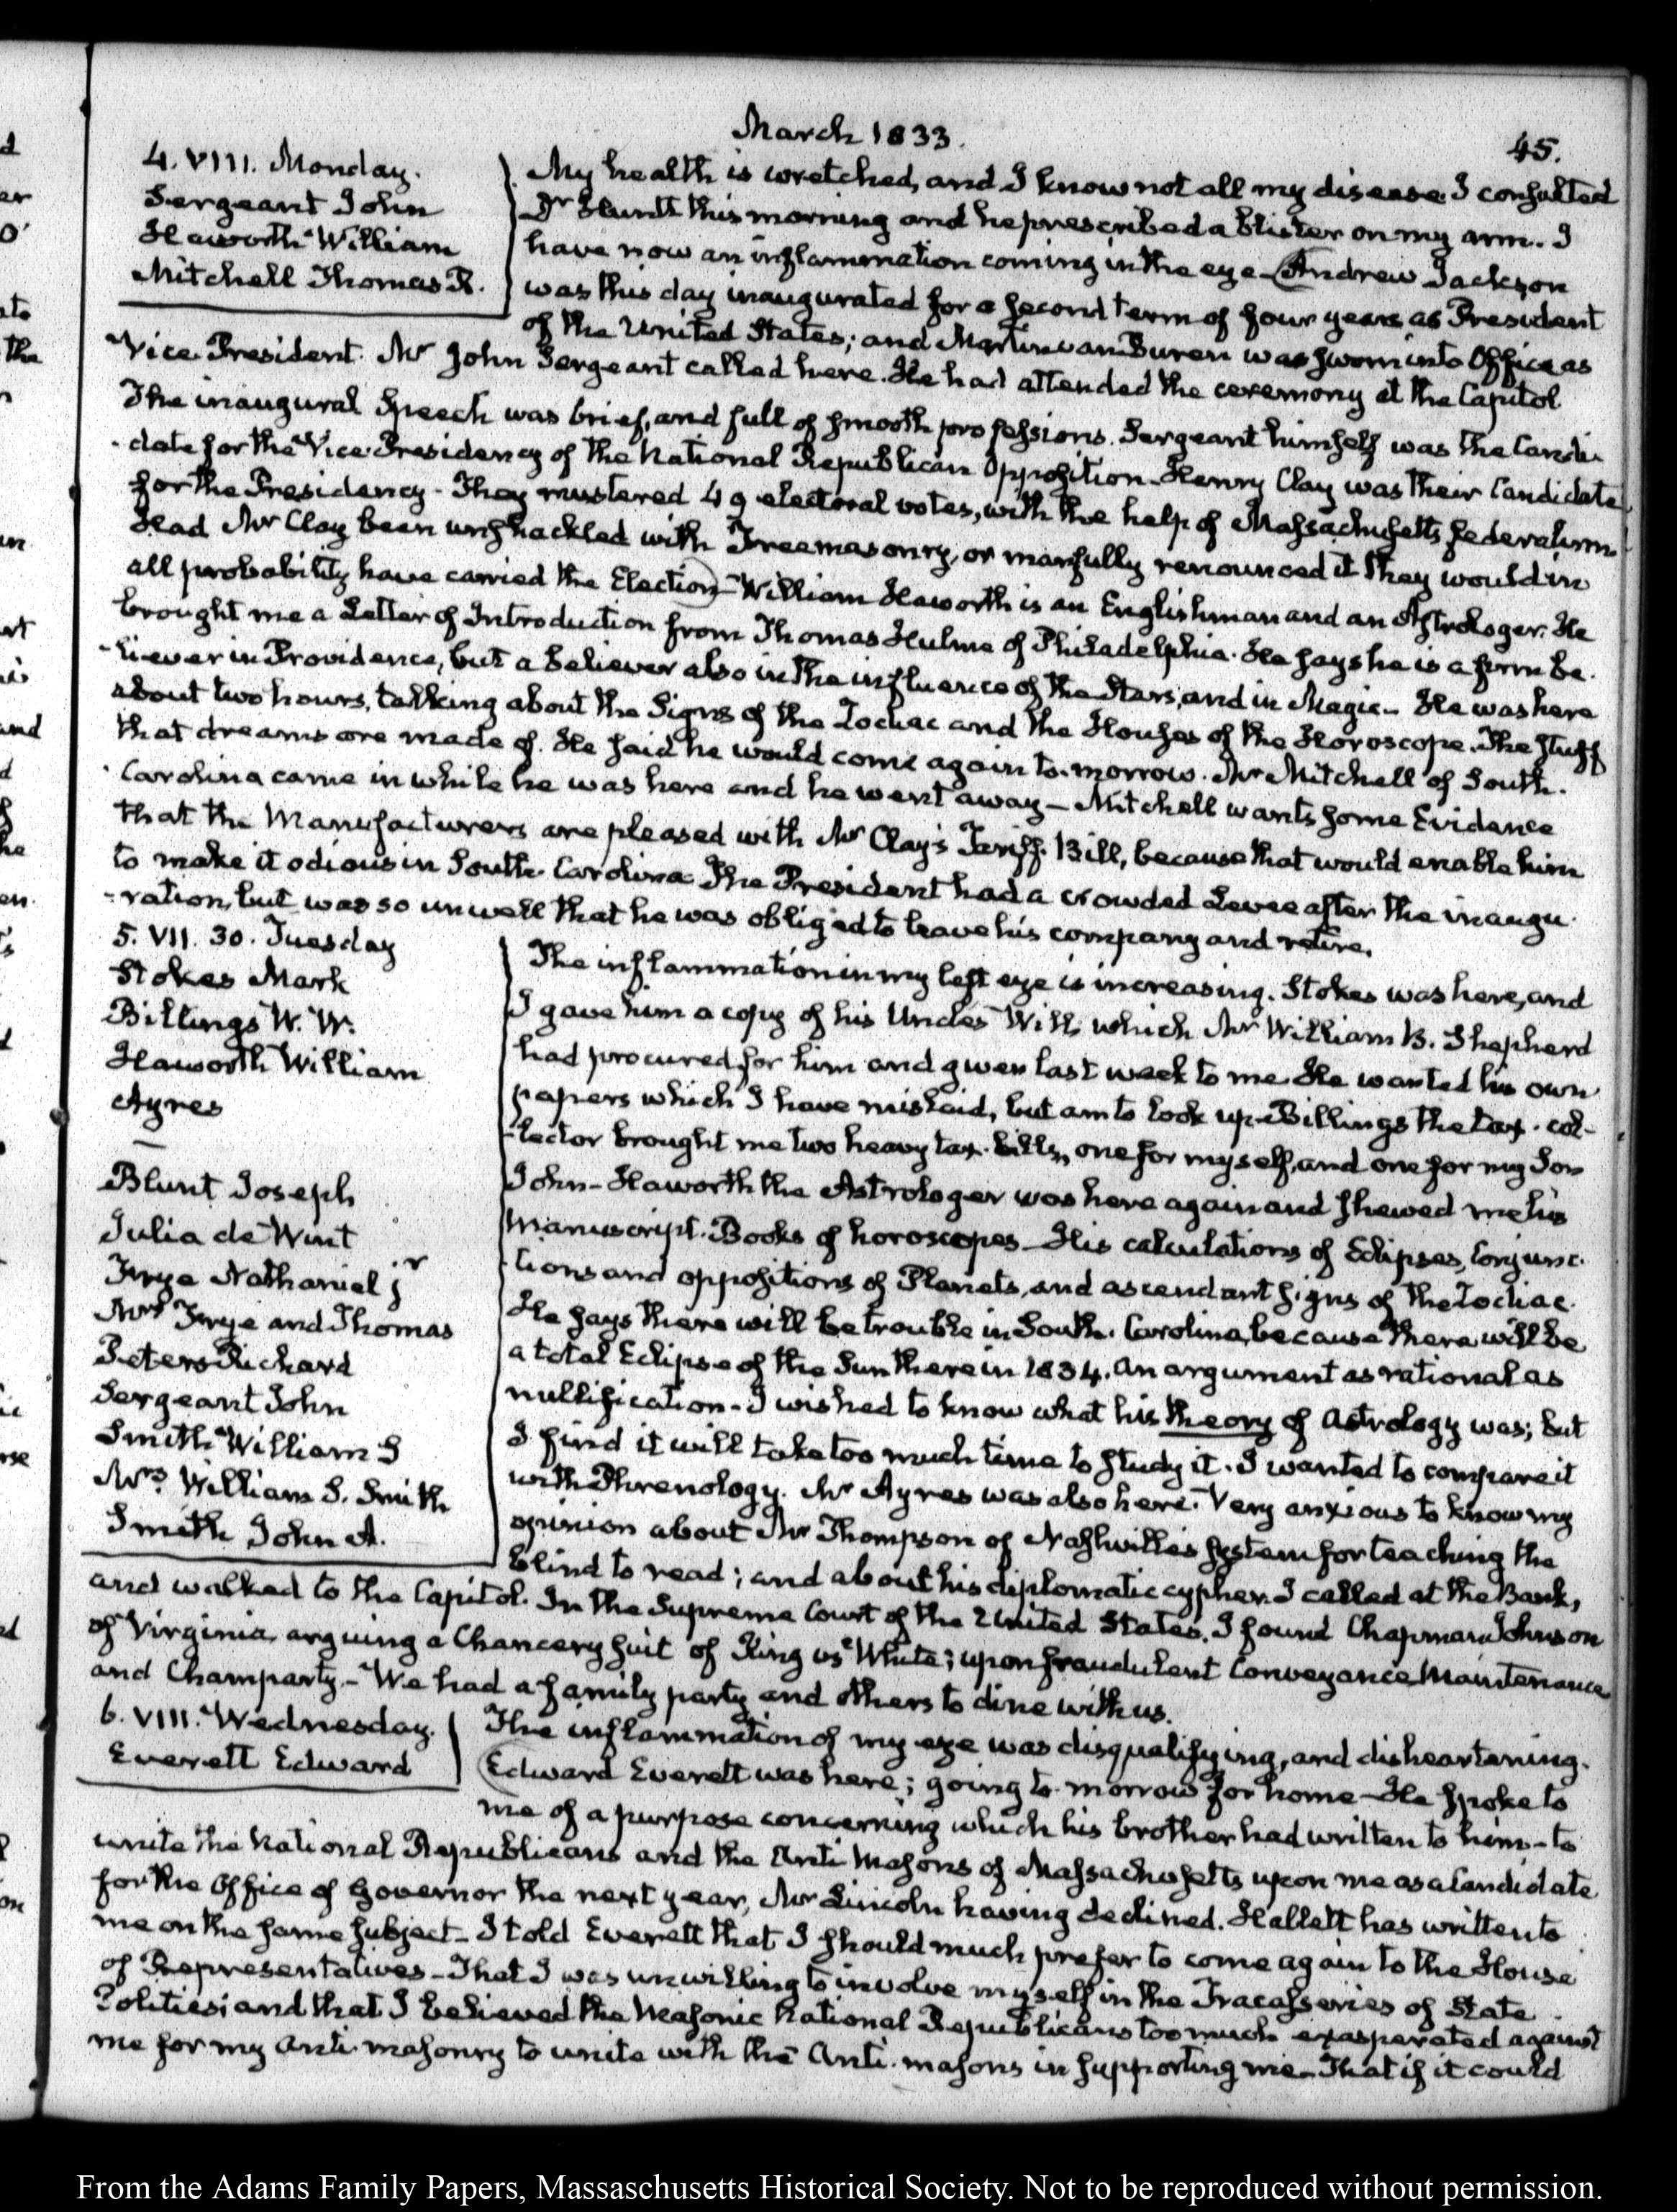 March 1833.
45.
4. VIII. Monday.
Sergeant John
Haworth William
Mitchell Thomas R.
My health is wretched, and I know not all my disease. I consulted
Dr Hunt this morning and he prescribed a blister on my arm. I
have now an inflammation coming in the eye — Andrew Jackson
was this day inaugurated for a second term of four years as President
of the United States; and Martin van Buren was sworn into Office as
Vice President. Mr John Sergeant called here. He had attended the ceremony at the Capitol
The inaugural Speech was brief, and full of smooth professions. Sergeant himself was the Candi-
-date for the Vice Presidency of the National Republican Opposition — Henry Clay was their Candidate
for the Presidency — They mustered 49 electoral votes, with the help of Massachusetts federalism
Had Mr Clay been unshackled with Freemasonry, or manfully renounced it they would in
all probability have carried the Election — William Haworth is an Englishman and an Astrologer. He
brought me a Letter of Introduction from Thomas Hulme of Philadelphia. He says he is a firm be-
-liever in Providence, but a believer also in the influence of the Stars, and in Magic — He was here
about two hours, talking about the Signs of the Zodiac and the Houses of the Horoscope. The stuff
that dreams are made of. He said he would come again to-morrow. Mr Mitchell of South-
Carolina came in while he was here and he went away — Mitchell wants some Evidence
that the Manufacturers are pleased with Mr Clay's Tariff-Bill, because that would enable him
to make it odious in South-Carolina. The President had a crowded Levee after the inaugu-
-ration, but was so unwell that he was obliged to leave his company and retire.
5. VII. 30. Tuesday
Stokes Mark
Billings W. W.
Haworth William
Ayres
Blunt Joseph
Julia de Wint
Frye Nathaniel jr
Mrs Frye and Thomas
Peters Richard
Sergeant John
Smith William S
Mrs William S. Smith
Smith John A.
The inflammation in my left eye is increasing. Stokes was here, and
I gave him a copy of his Uncles Will, which Mr William B. Shepherd
had procured for him and given last week to me. He wanted his own
papers which I have mislaid, but am to look up — Billings the tax-col-
-lector brought me two heavy tax-bills, one for myself, and one for my Son
John — Haworth the Astrologer was here again and shewed me his
Manuscript-Books of horoscopes — His calculations of Eclipses, Conjunc-
-tions and oppositions of Planets, and ascendant signs of the Zodiac.
He says there will be trouble in South-Carolina, because there will be
a total Eclipse of the Sun there in 1834. An argument as rational as
nullification — I wished to know what his theory of Astrology was; but
I find it will take too much time to study it. I wanted to compare it
with Phrenology. Mr Ayres was also here. Very anxious to know my
opinion about Mr Thompson of Nashville's system for teaching the
blind to read; and about his diplomatic cypher. I called at the Bank,
and walked to the Capitol. In the Supreme Court of the United States, I found Chapman Johnson
of Virginia, arguing a Chancery suit of King vs White; upon fraudulent Conveyance, Maintenance
and Champarty — We had a family party and others to dine with us.
6. VIII. Wednesday.
Everett Edward
The inflammation of my eye was disqualifying, and disheartening.
Edward Everett was here; going to-morrow for home — He spoke to
me of a purpose concerning which his brother had written to him — to
unite the National Republicans and the Anti Masons of Massachusetts upon me as a Candidate
for the Office of Governor the next year, Mr Lincoln having declined. Hallett has written to
me on the same subject — I told Everett that I should much prefer to come again to the House
of Representatives — That I was unwilling to involve myself in the Tracasseries of State
Politics; and that I believed the Masonic National Republicans too much exasperated against
me for my Anti-masonry to unite with the Anti-masons in supporting me — That if it could
From the Adams Family Papers, Massachusetts Historical Society. Not to be reproduced without permission.